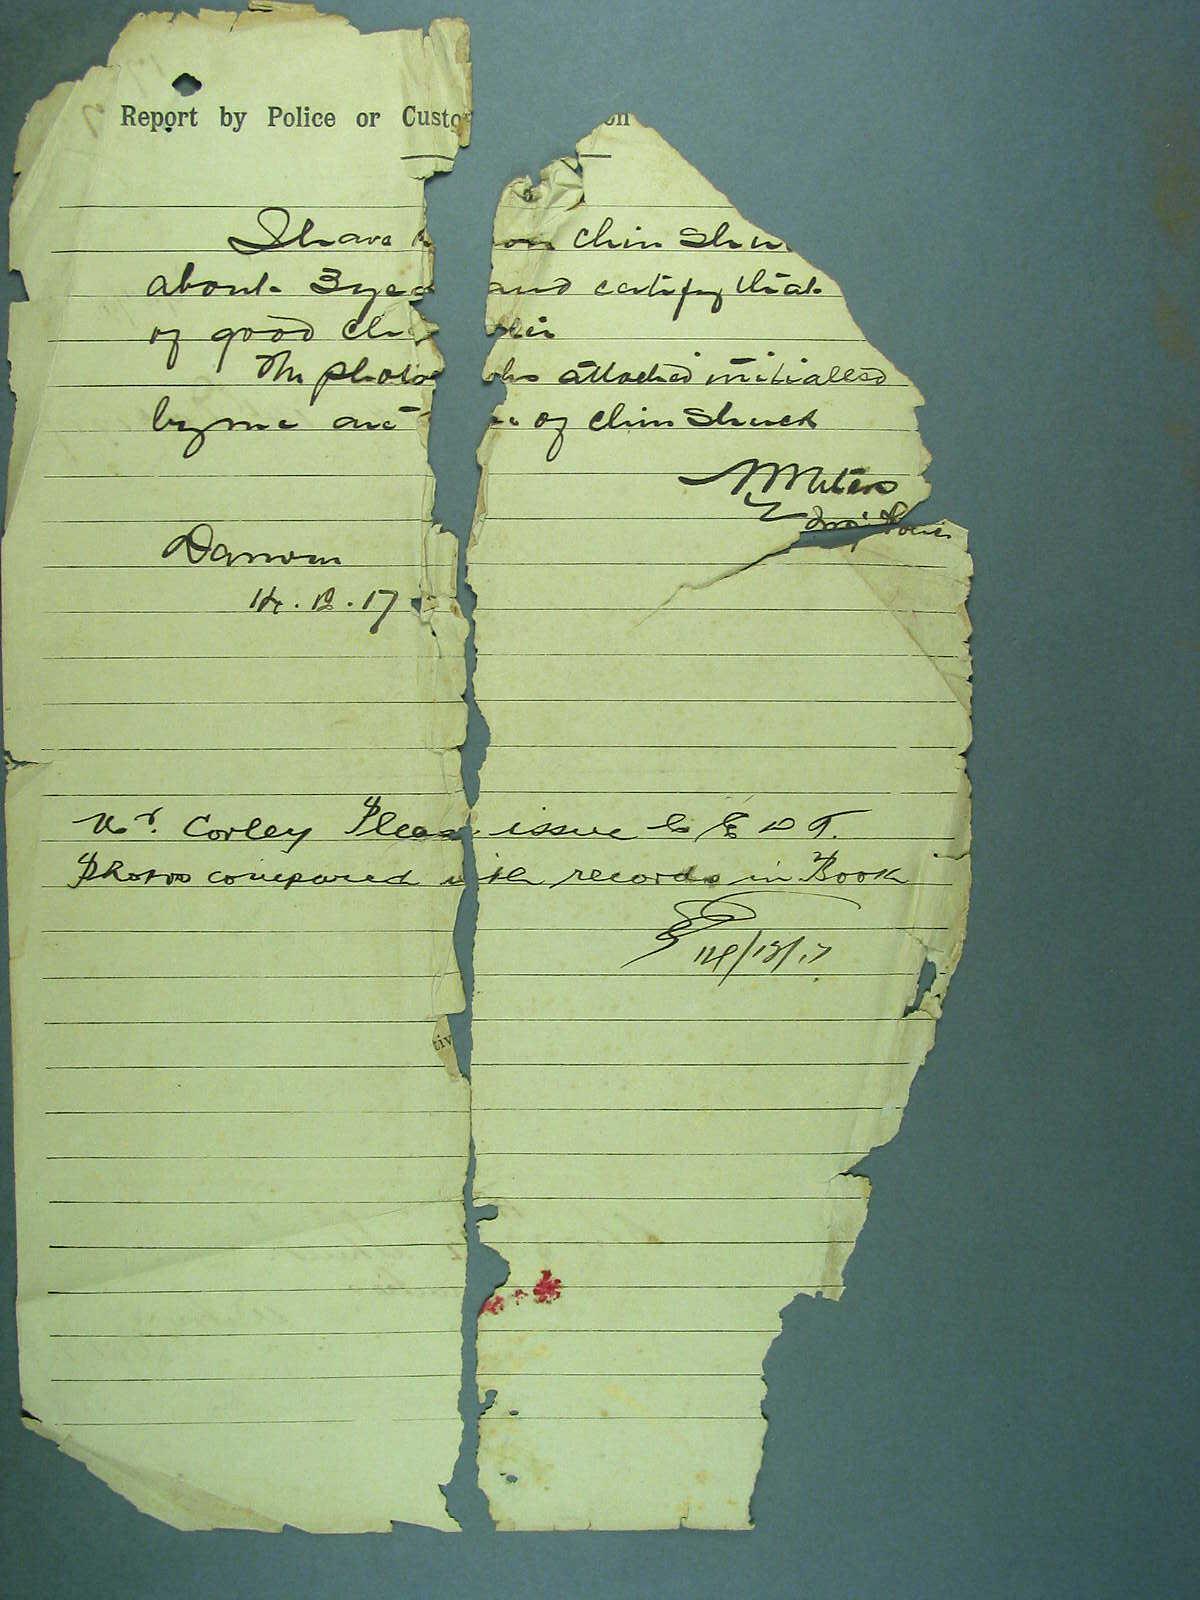 Report by Police or Custo on
I have k on Chin Shu
about 3 yea and certify that
of good Ch ter
The photog phs attached initialled
by me are of Chin Shuck
Insp Police
Darwin
14.12.17
tiv
Mr. Corley Please issue C E D T.
Photos compared with records in Book
14/12/17